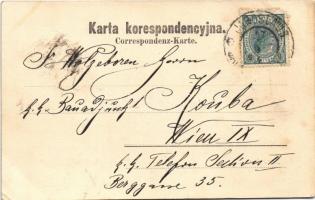 Karta korespondencyjna.
Correspondenz-Karte.
Sr. Wolgeboren Herrn
k.k. Bauadjunct Kouba
Wien IX
k.k. Telefon Section II
Berggasse 35.